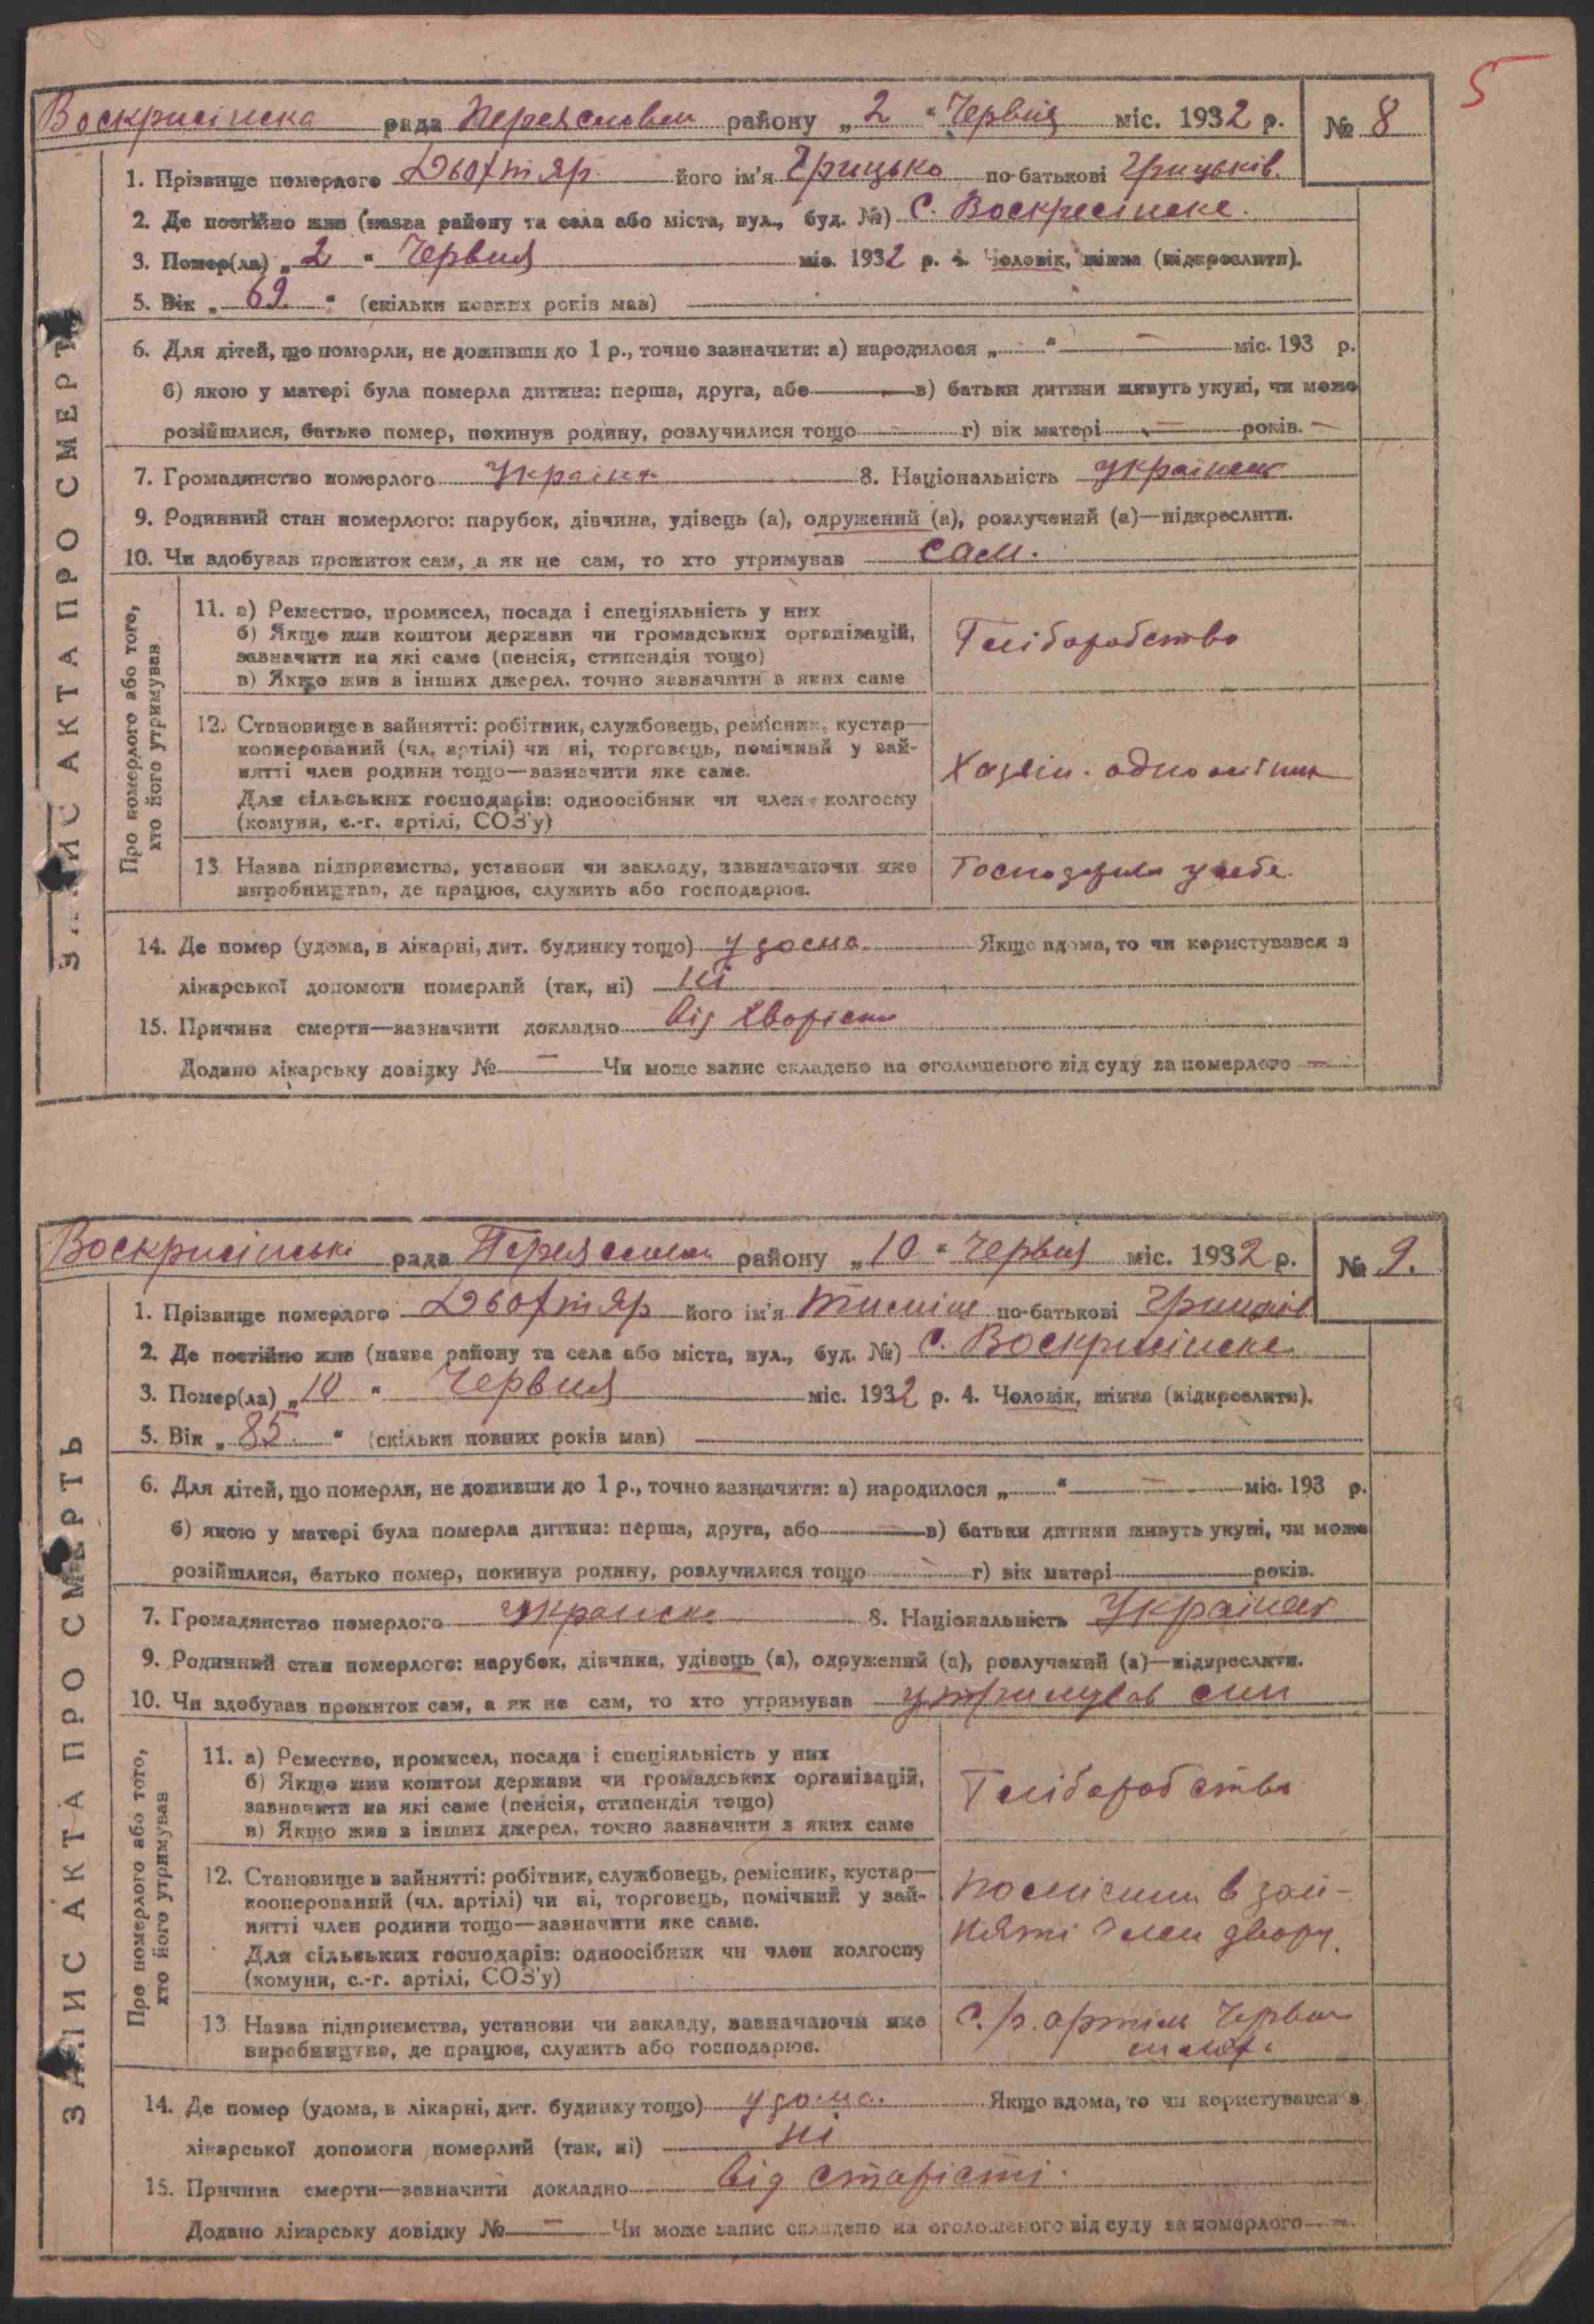 5
Воскрисінска рада Переяславськ району „2“ Червня міс. 1932 р. № 8
1. Прізвище померлого Дьогтяр його ім'я Грицько по-батькові Грицьків.
2. Де постійно жив (назва району та села або міста, вул., буд. №) с. Воскресінске.
3. Помер(ла) „2“ Червня міс. 1932 р. 4. Чоловік, жінка (підкреслити).
5. Вік „69.“ (скільки повних років мав)
6. Для дітей, що померли, не доживши до 1 р., точно зазначити: а) народилося „ “ — міс. 193 р.
б) якою у матері була померла дитина: перша, друга, або — в) батьки дитини живуть укупі, чи може
розійшлися, батько помер, покинув родину, розлучилися тощо — г) вік матері — років. —
7. Громадянство померлого 8. Національність українець
9. Родинний стан померлого: парубок, дівчина, удівець (а), одружений (а), розлучений (а)—підкреслити.
10. Чи здобував прожиток сам, а як не сам, то хто утримував сам.
ЗАПИС АКТА ПРО СМЕРТЬ
Про померлого або того,
хто його утримував
11. а) Ремество, промисел, посада і спеціяльність у них
б) Якще жив коштом держави чи громадських організацій,
зазначити на які саме (пенсія, стипендія тощо)
в) Якщо жив в інших джерел, точно зазначити з яких саме
Хліборобство
12. Становище в зайнятті: робітник, службовець, ремісник, кустар—
кооперований (чл. артілі) чи ні, торговець, помічний у зай-
нятті член родини тощо—зазначити яке саме.
Для сільських господарів: одноосібник чи член колгоспу
(комуни, с.-г. артілі, СОЗ'у)
Хазяїн. одноосібник
13. Назва підприємства, установи чи закладу, зазначаючи яке
виробництво, де працює, служить або господарює.
у себе.
14. Де помер (удома, в лікарні, дит. будинку тощо) удома Якщо вдома, то чи користувався з
лікарської допомоги померлий (так, ні) ні
15. Причина смерти—зазначити докладно від
Додано лікарську довідку № — Чи може запис складено на оголошеного від суду за померлого —
рада району „10“ Червня міс. 1932 р. № 9.
1. Прізвище померлого Дьогтяр його ім'я по-батькові
2. Де постійно жив (назва району та села або міста, вул., буд. №) с. Воскрисінске
3. Помер(ла) „10“ Червня міс. 1932 р. 4. Чоловік, жінка (підкреслити).
5. Вік „85.“ (скільки повних років мав)
6. Для дітей, що померли, не доживши до 1 р., точно зазначити: а) народилося „ “ — міс. 193 р.
б) якою у матері була померла дитина: перша, друга, або — в) батьки дитини живуть укупі, чи може
розійшлися, батько помер, покинув родину, розлучилися тощо — г) вік матері років.
7. Громадянство померлого 8. Національність Українец
9. Родинний стан померлого: парубок, дівчина, удівець (а), одружений (а), розлучений (а)—підкреслити.
10. Чи здобував прожиток сам, а як не сам, то хто утримував утримував син
ЗАПИС АКТА ПРО СМЕРТЬ
Про померлого або того,
хто його утримував
11. а) Ремество, промисел, посада і спеціяльність у них
б) Якще жив коштом держави чи громадських організацій,
зазначити на які саме (пенсія, стипендія тощо)
в) Якщо жив з інших джерел, точно зазначити з яких саме
Хліборобство
12. Становище в зайнятті: робітник, службовець, ремісник, кустар—
кооперований (чл. артілі) чи ні, торговець, помічний у зай-
нятті член родини тощо—зазначити яке саме.
Для сільських господарів: одноосібник чи член колгоспу
(комуни, с.-г. артілі, СОЗ'у)
в зай-
няті член двору.
13. Назва підприємства, установи чи закладу, зазначаючи яке
виробництво, де працює, служить або господарює.
14. Де помер (удома, в лікарні, дит. будинку тощо) удома. Якщо вдома, то чи користувався з
лікарської допомоги померлий (так, ні) ні
15. Причина смерти—зазначити докладно від старісті.
Додано лікарську довідку № — Чи може запис складено на оголошеного від суду за померлого —